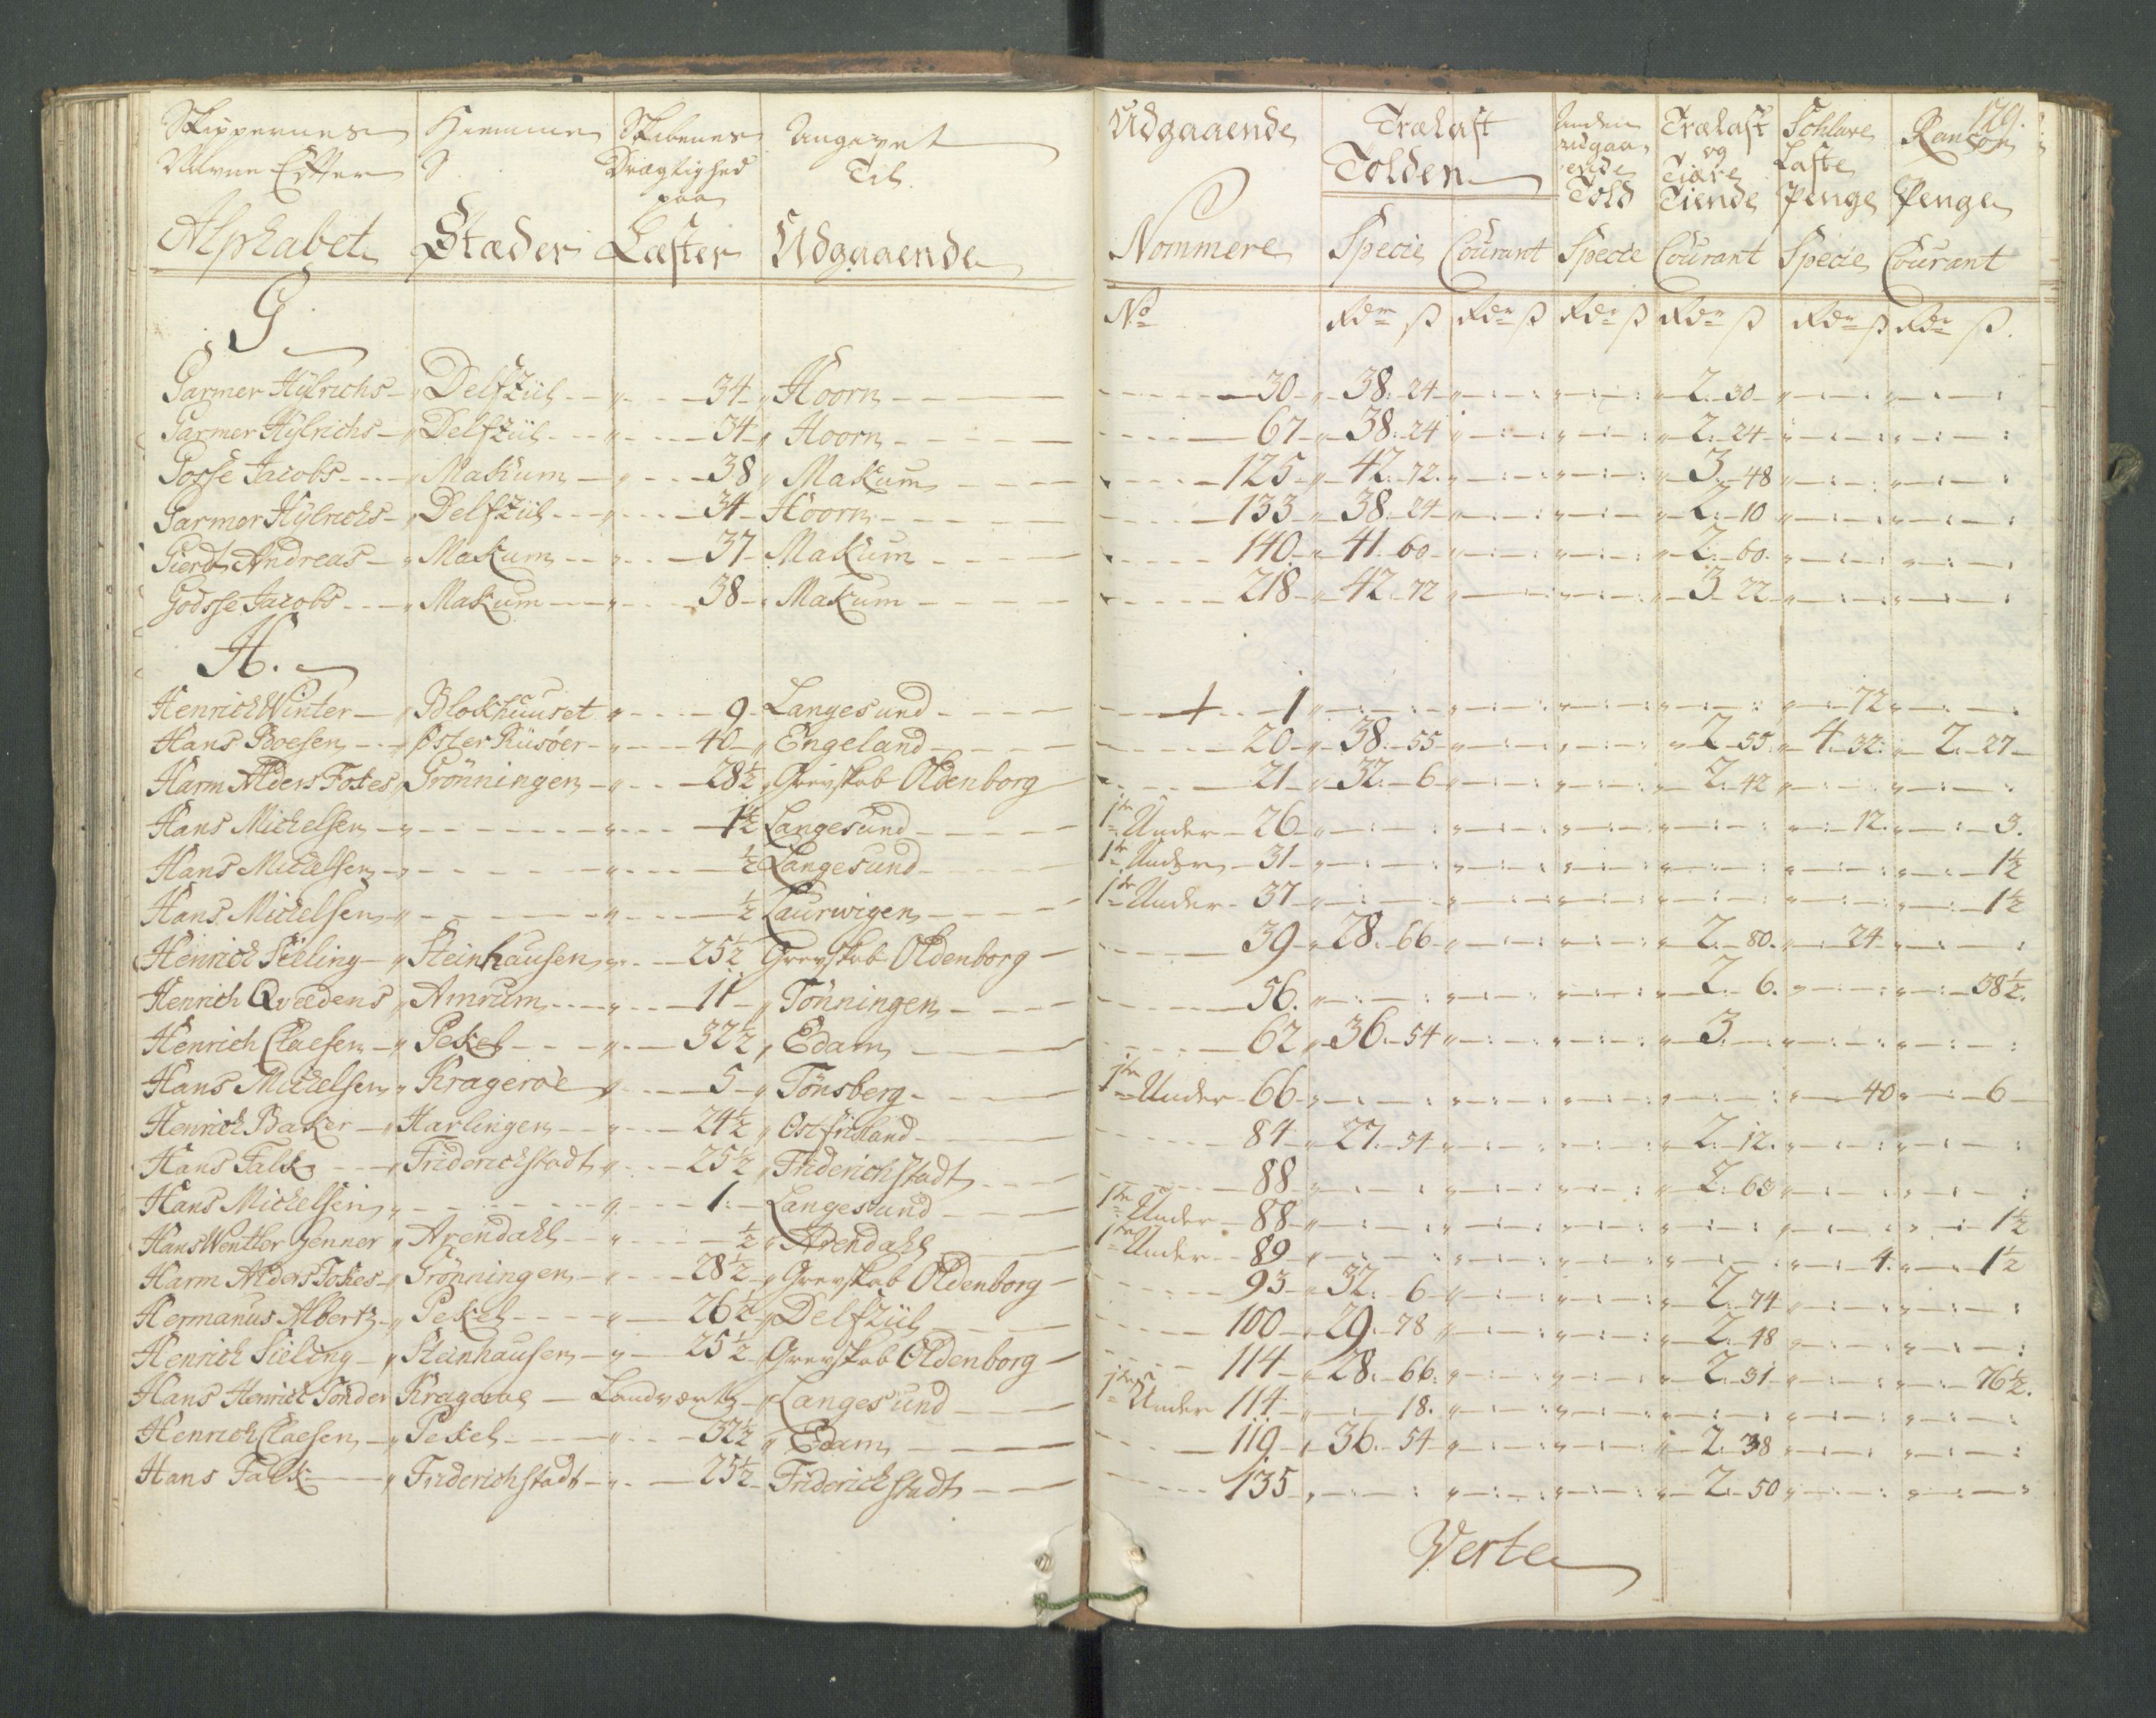 Skippernes Navne Efter Alphabet | Hiemme Stæder | Skibenes Drægtighed paa Læster | Angivet Til Udgaaende | Udgaaende Nommere | Trælast Tolden Specie | Courant | Anden udgaaende Told Specie | Trælast og Tiære Tiende Courant | Sohlare Laste Penge Specie | Ranson Penge Courant
129.
No | Rdr ß | Rdr ß | Rdr ß | Rdr ß | Rdr ß | Rdr ß
G
Garmer Hylrichs | Delfziil | 34 | Hoorn | 30 | 38. 24 | 2. 30
Garmer Hylrichs | Delfziil | 34 | Hoorn | 67 | 38. 24 | 2. 24
Gosse Jacobs | Makum | 38 | Makum | 125 | 42. 72. | 3. 48
Garmer Hylrichs | Delfziil | 34 | Hoorn | 133 | 38. 24 | 2. 10
Gierdt Andreas | Makum | 37 | Makum | 140 | 41. 60 | 2. 60.
Godsse Jacobs | Makum | 38 | Makum | 218 | 42. 72 | 3 22
H.
Henrich Winter | Blokhuuset | 9 | Langesund | + 1 | 72
Hans Boesen | Øster Riisøer | 40 | Engeland | 20 | 38. 55 | 2. 55. | 4. 32. | 2. 27
Harm Alders Fokes | Grönningen | 28½ | Grevskab Oldenborg | 21 | 32. 6 | 2. 42
Hans Michelsen | 1½ | Langesund | 1ste Under 26 | 12. | 3.
Hans Michelsen | ½ | Langesund | 1ste Under 31 | 1½
Hans Michelsen | ½ | Laurwigen | 1ste Under 37 | 1½
Henrich Sieling | Steinhausen | 25½ | Grevskab Oldenborg | 39 | 28. 66 | 2. 80. | 24
Henrich Qvedens | Amrum | 11 | Tönningen | 56. | 2. 6. | 58½.
Henrich Claesen | Pekel | 32½ | Edam | 62 | 36. 54 | 3.
Hans Michelsen | Krageröe | 5 | Tönsberg | 1ste Under 66 | 40 | 6
Henrich Baker | Harlingen | 24½ | Ostfrisland | 84 | 27. 54 | 2. 12.
Hans Falk | Friderichstadt | 25½ | Friderichstadt | 88 | 2. 63
Hans Michelsen | 1. | Langesund | 1ste Under 88 | 1½
Hans Wentler Jenner | Arendahl | ½ | Arendahl | 1ste Under 89 | 4. | 1½
Harm Alders Fokes | Grönningen | 28½ | Grevskab Oldenborg | 93 | 32. 6 | 2. 74
Hermanus Albertz | Pekel | 26½ | Delfziil | 100 | 29. 78 | 2. 18
Henrich Sieling | Steinhausen | 25½ | Grevskab Oldenborg | 114 | 28. 66. | 2. 31 | 76½.
Hans Henrich Tönder | Krageröe | Landværtz | Langesund | 1ste Under 114 | 18.
Henrich Claesen | Pekel | 32½ | Edam | 119 | 36. 54 | 2. 38
Hans Falk | Friderichstadt | 25½ | Friderichstadt | 135 | 2. 50
Verte